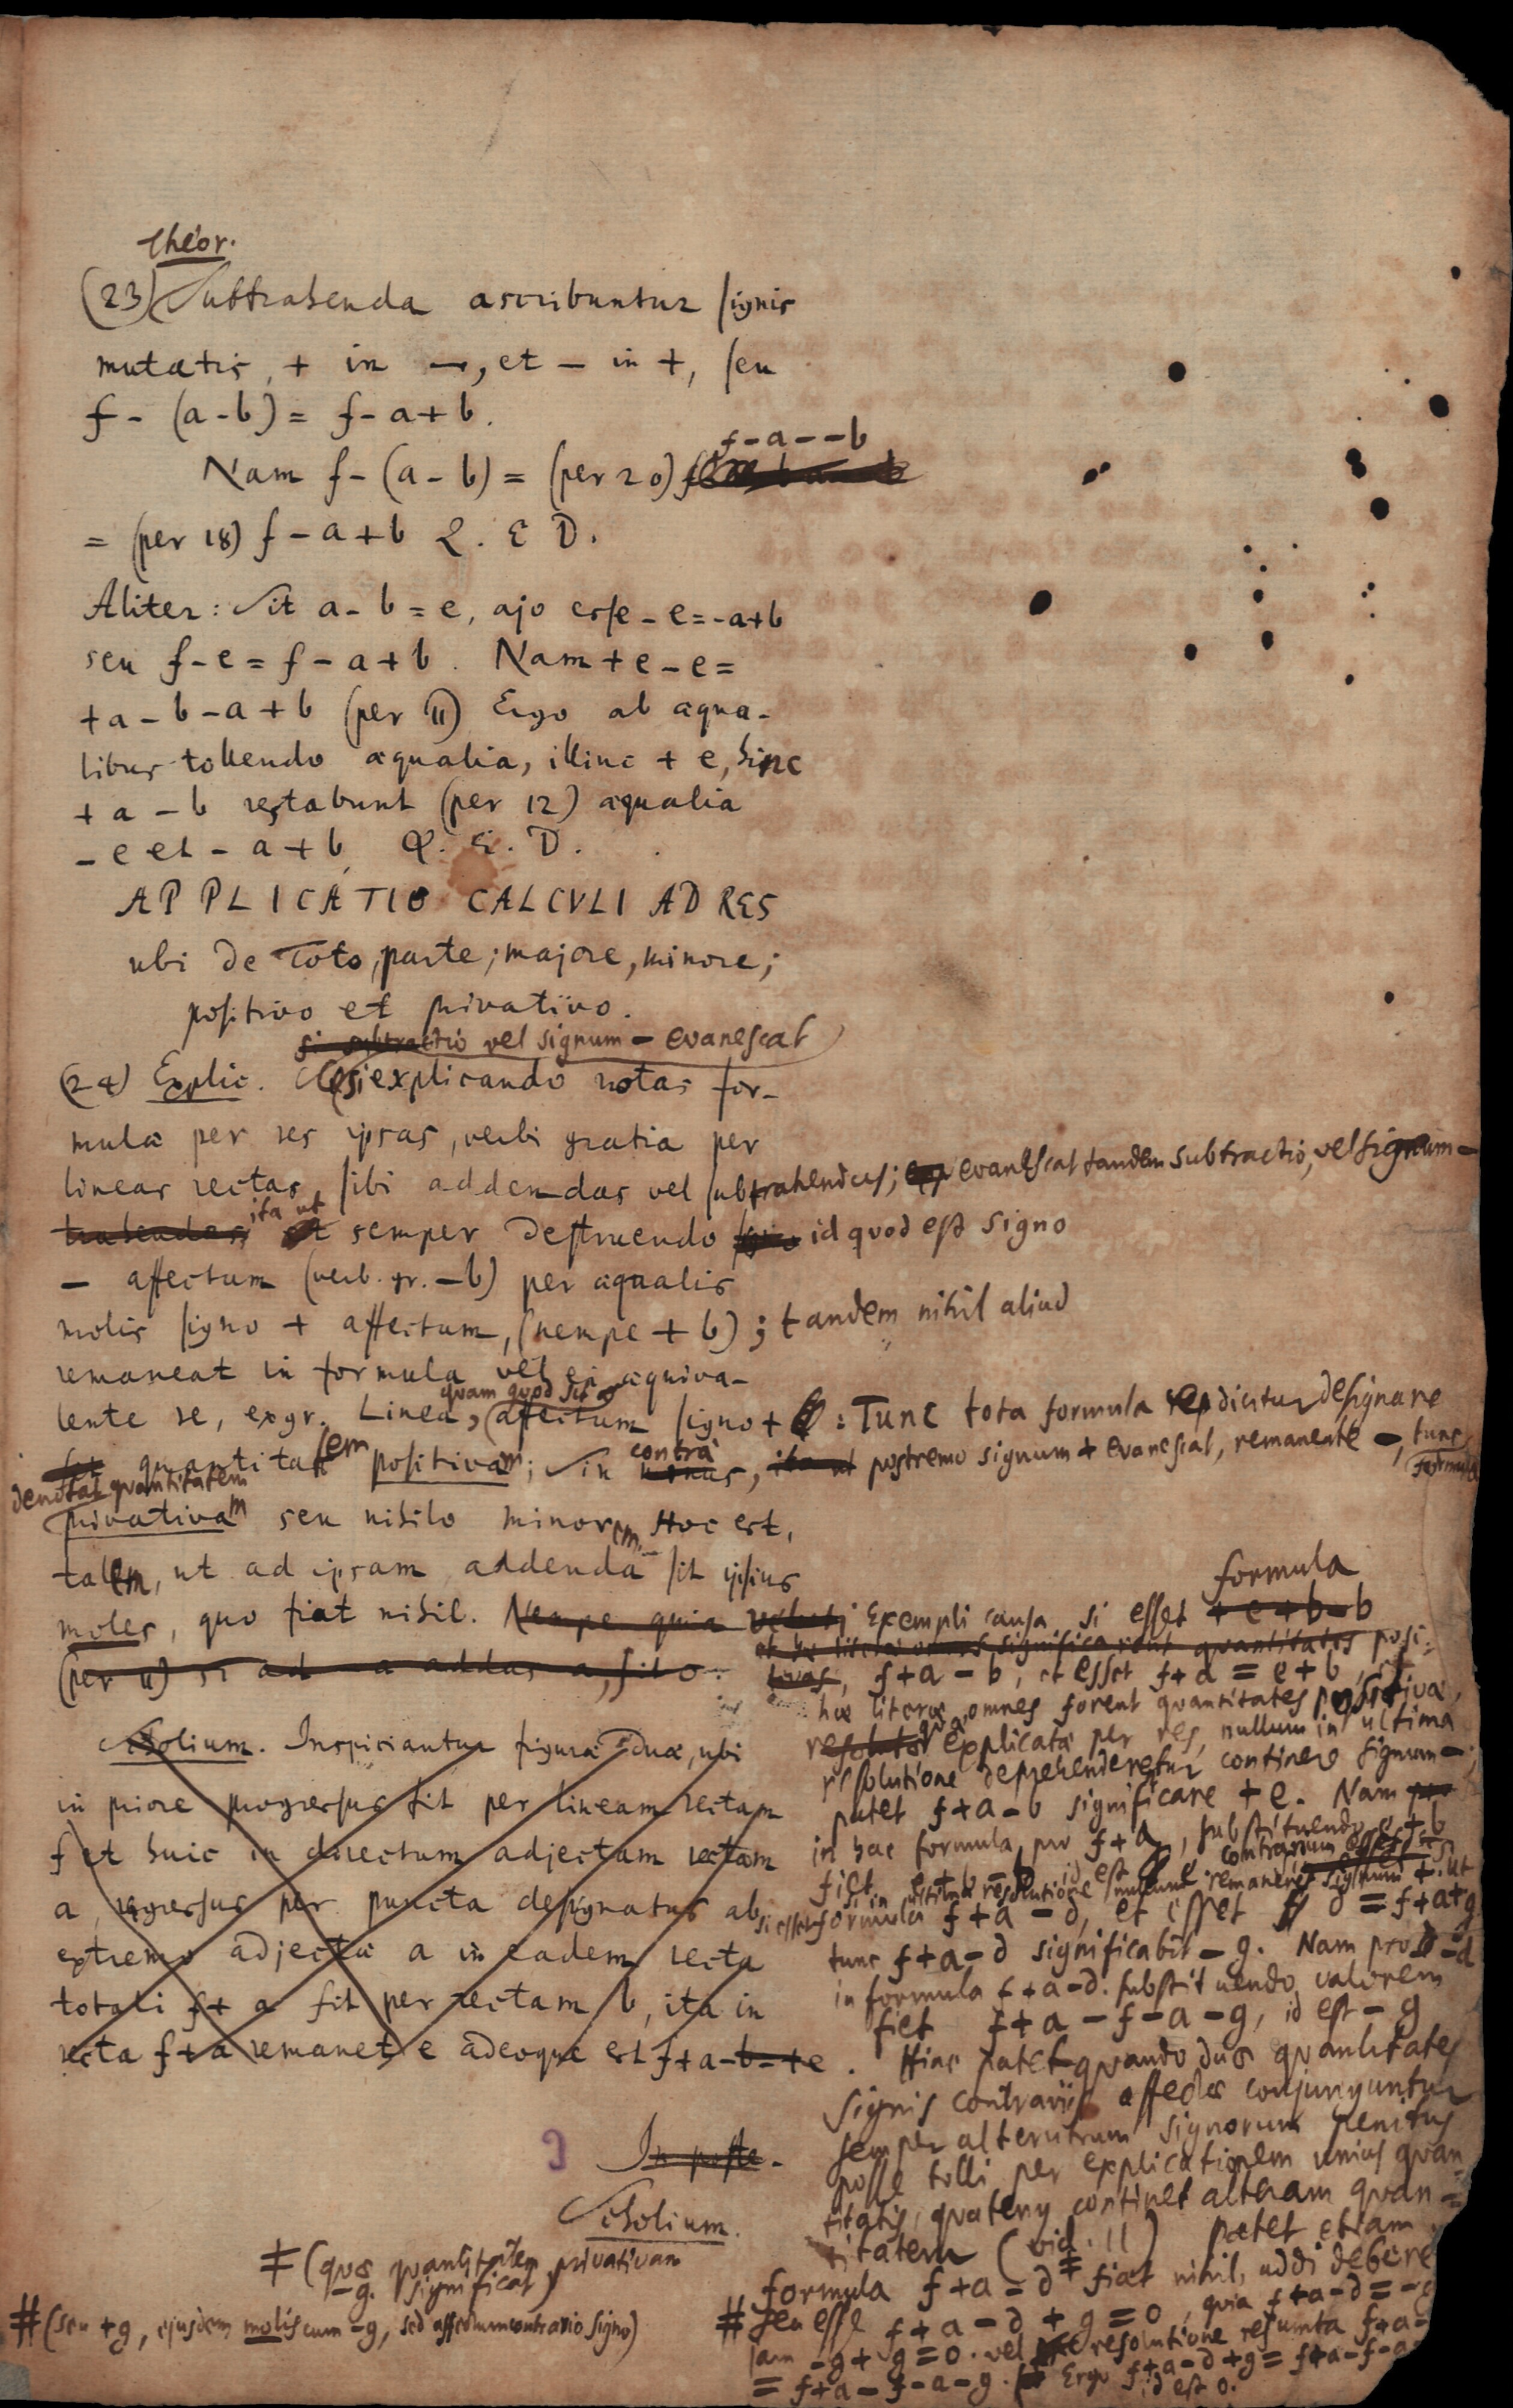 Theor.
(23) Subtrahenda ascribuntur signis
mutatis, + in –, et – in +, seu
f – (a – b) = f – a + b.
f – a – – b
Nam f – (a – b) = (per 20)
= (per 18) f – a + b Q. E D.
Aliter: Sit a – b = e, ajo esse – e = – a + b
seu f – e = f – a + b. Nam + e – e =
+ a – b – a + b (per 11) Ergo ab æqua-
libus tollendo æqualia, illinc + e, hinc
+ a – b restabunt (per 12) æqualia
– e et – a + b Q. E. D.
APPLICATIO CALCULI AD RES
ubi de Toto, parte; majore, minore;
positivo et privativo.
si subtractio vel signum – evanescat
(24) Explic. Si explicando notas for-
mulæ per res ipsas, verbi gratia per
lineas rectas sibi addendas vel subtrahendas; evanescat tandem subtractio, vel signum –
trahendas ita ut semper destruendo id quod est signo
– affectum (verb. gr. – b) per æqualis
molis signo + affectum, (nempe + b); tandem nihil aliud
remaneat in formula vel ei æquiva-
quam quod sit
lente re, ex gr. Linea, affectum signo + : Tunc tota formula dicitur designare
quantitatem positivam; sin contra, postremo signum + evanescat, remanente –, tunc
formula
denotat quantitatem
privativam seu nihilo minorem. Hoc est,
talem, ut ad ipsam addenda sit ipsius
moles, quo fiat nihil. Nempe quia
(per 11) si ad – a addas a, fit 0.
Scholium. Inspiciantur figuræ duæ, ubi
in priore progressus fit per lineam rectam
f et huic in directum adjectam rectam
a, regressus per puncta designatus ab
extremo adjectæ a in eadem recta
totali f + a fit per rectam b, ita in
recta f + a remanet e adeoque est f + a – b = + e.
In poste.
Scholium.
formula
Exempli causa si esset + e + b – b
et hæ literæ omnes significarent quantitates posi-
tivas, f + a – b, et esset f + a = e + b, et
hæ literæ omnes forent quantitates positivæ,
quæ explicatæ per res, nullum in ultima
resolutione deprehenderetur continere signum –;
patet f + a – b significare + e. Nam
in hac formula, pro f + a, substituendo e + b
fiet e + b – b id est e. contrarium esset
si in ultima resolutione remaneret signum –. Ut
si esset formula f + a – d, et esset d = f + a + g
tunc f + a – d significabit – g. Nam pro – d
in formula f + a – d. substituendo valorem
fiet f + a – f – a – g, id est – g
Hinc patet quando duæ quantitates
signis contrariis affectæ conjunguntur
semper alterutrum signorum penitus
posse tolli per explicationem unius quan-
titatis, quatenus continet alteram quan-
titatem (vid. 11) patet etiam
formula f + a – d ‡ fiat nihil, addi debere
# seu esse f + a – d + g = 0, quia f + a – d = – g
jam – g + g = 0. vel resolutione resumta f + a –
= f + a – f – a – g. Ergo f + a – d + g = f + a – f – a
id est 0.
‡ (quæ quantitatem privativam
– g. significat)
# (seu + g, ejusdem molis cum – g, sed affectum contrario signo)